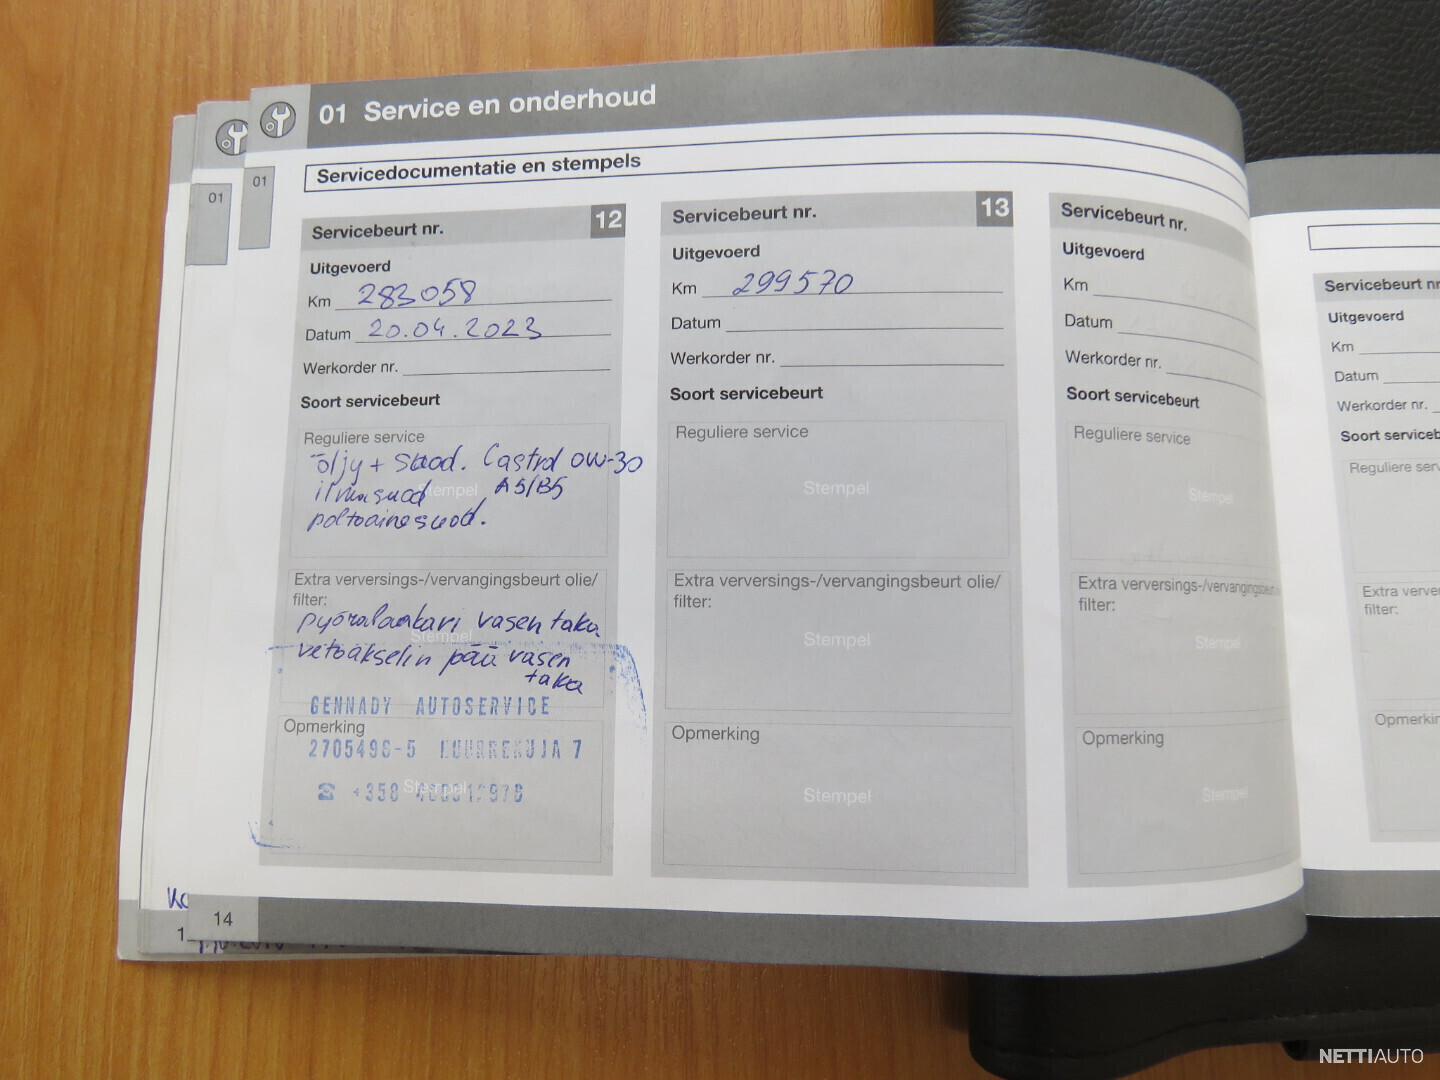 01 Service en onderhoud
01
01
Servicedocumentatie en stempels
Servicebeurt nr. 12
Uitgevoerd
Km 283058
Datum 20.04.2023
Werkorder nr.
Soort servicebeurt
Reguliere service
öljy + suod. Castrol 0W-30
ilmasuod A5/B5
Stempel
poltoainesuod.
Extra verversings-/vervangingsbeurt olie/
filter:
pyörälaakari vasen taka
Stempel
vetoakselin pää vasen
taka
GENNADY AUTOSERVICE
Opmerking
2705496-5 KUURREKUJA 7
Stempel
☎ +358
14
Servicebeurt nr. 13
Uitgevoerd
Km 299570
Datum
Werkorder nr.
Soort servicebeurt
Reguliere service
Stempel
Extra verversings-/vervangingsbeurt olie/
filter:
Stempel
Opmerking
Stempel
Servicebeurt nr.
Uitgevoerd
Km
Datum
Werkorder nr.
Soort servicebeurt
Reguliere service
Stempel
Extra verversings-/vervangingsbeurt
filter:
Stempel
Opmerking
Stempel
Servicebeurt nr
Uitgevoerd
Km
Datum
Werkorder nr.
Soort serviceb
Reguliere serv
Extra verver
filter:
Opmerkin
NETTIAUTO